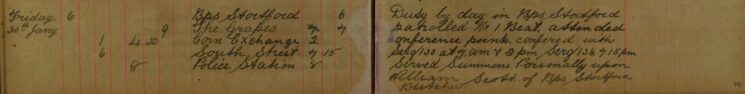 Friday 6 Bps Stortford 6 Duty by day in Bps Stortford
20th Jany 9 The Grapes 4 4 patrolled No 1 Beat, attended
1 4 30 Corn Exchange 2 conference points confered with
6 South Street 4 15 Serg 130 at 9 am & 2 pm, Serg 136 4.15 pm
8 Police Station 8 Served Summons Personally upon
William Scott of Bps Stortford
Butcher